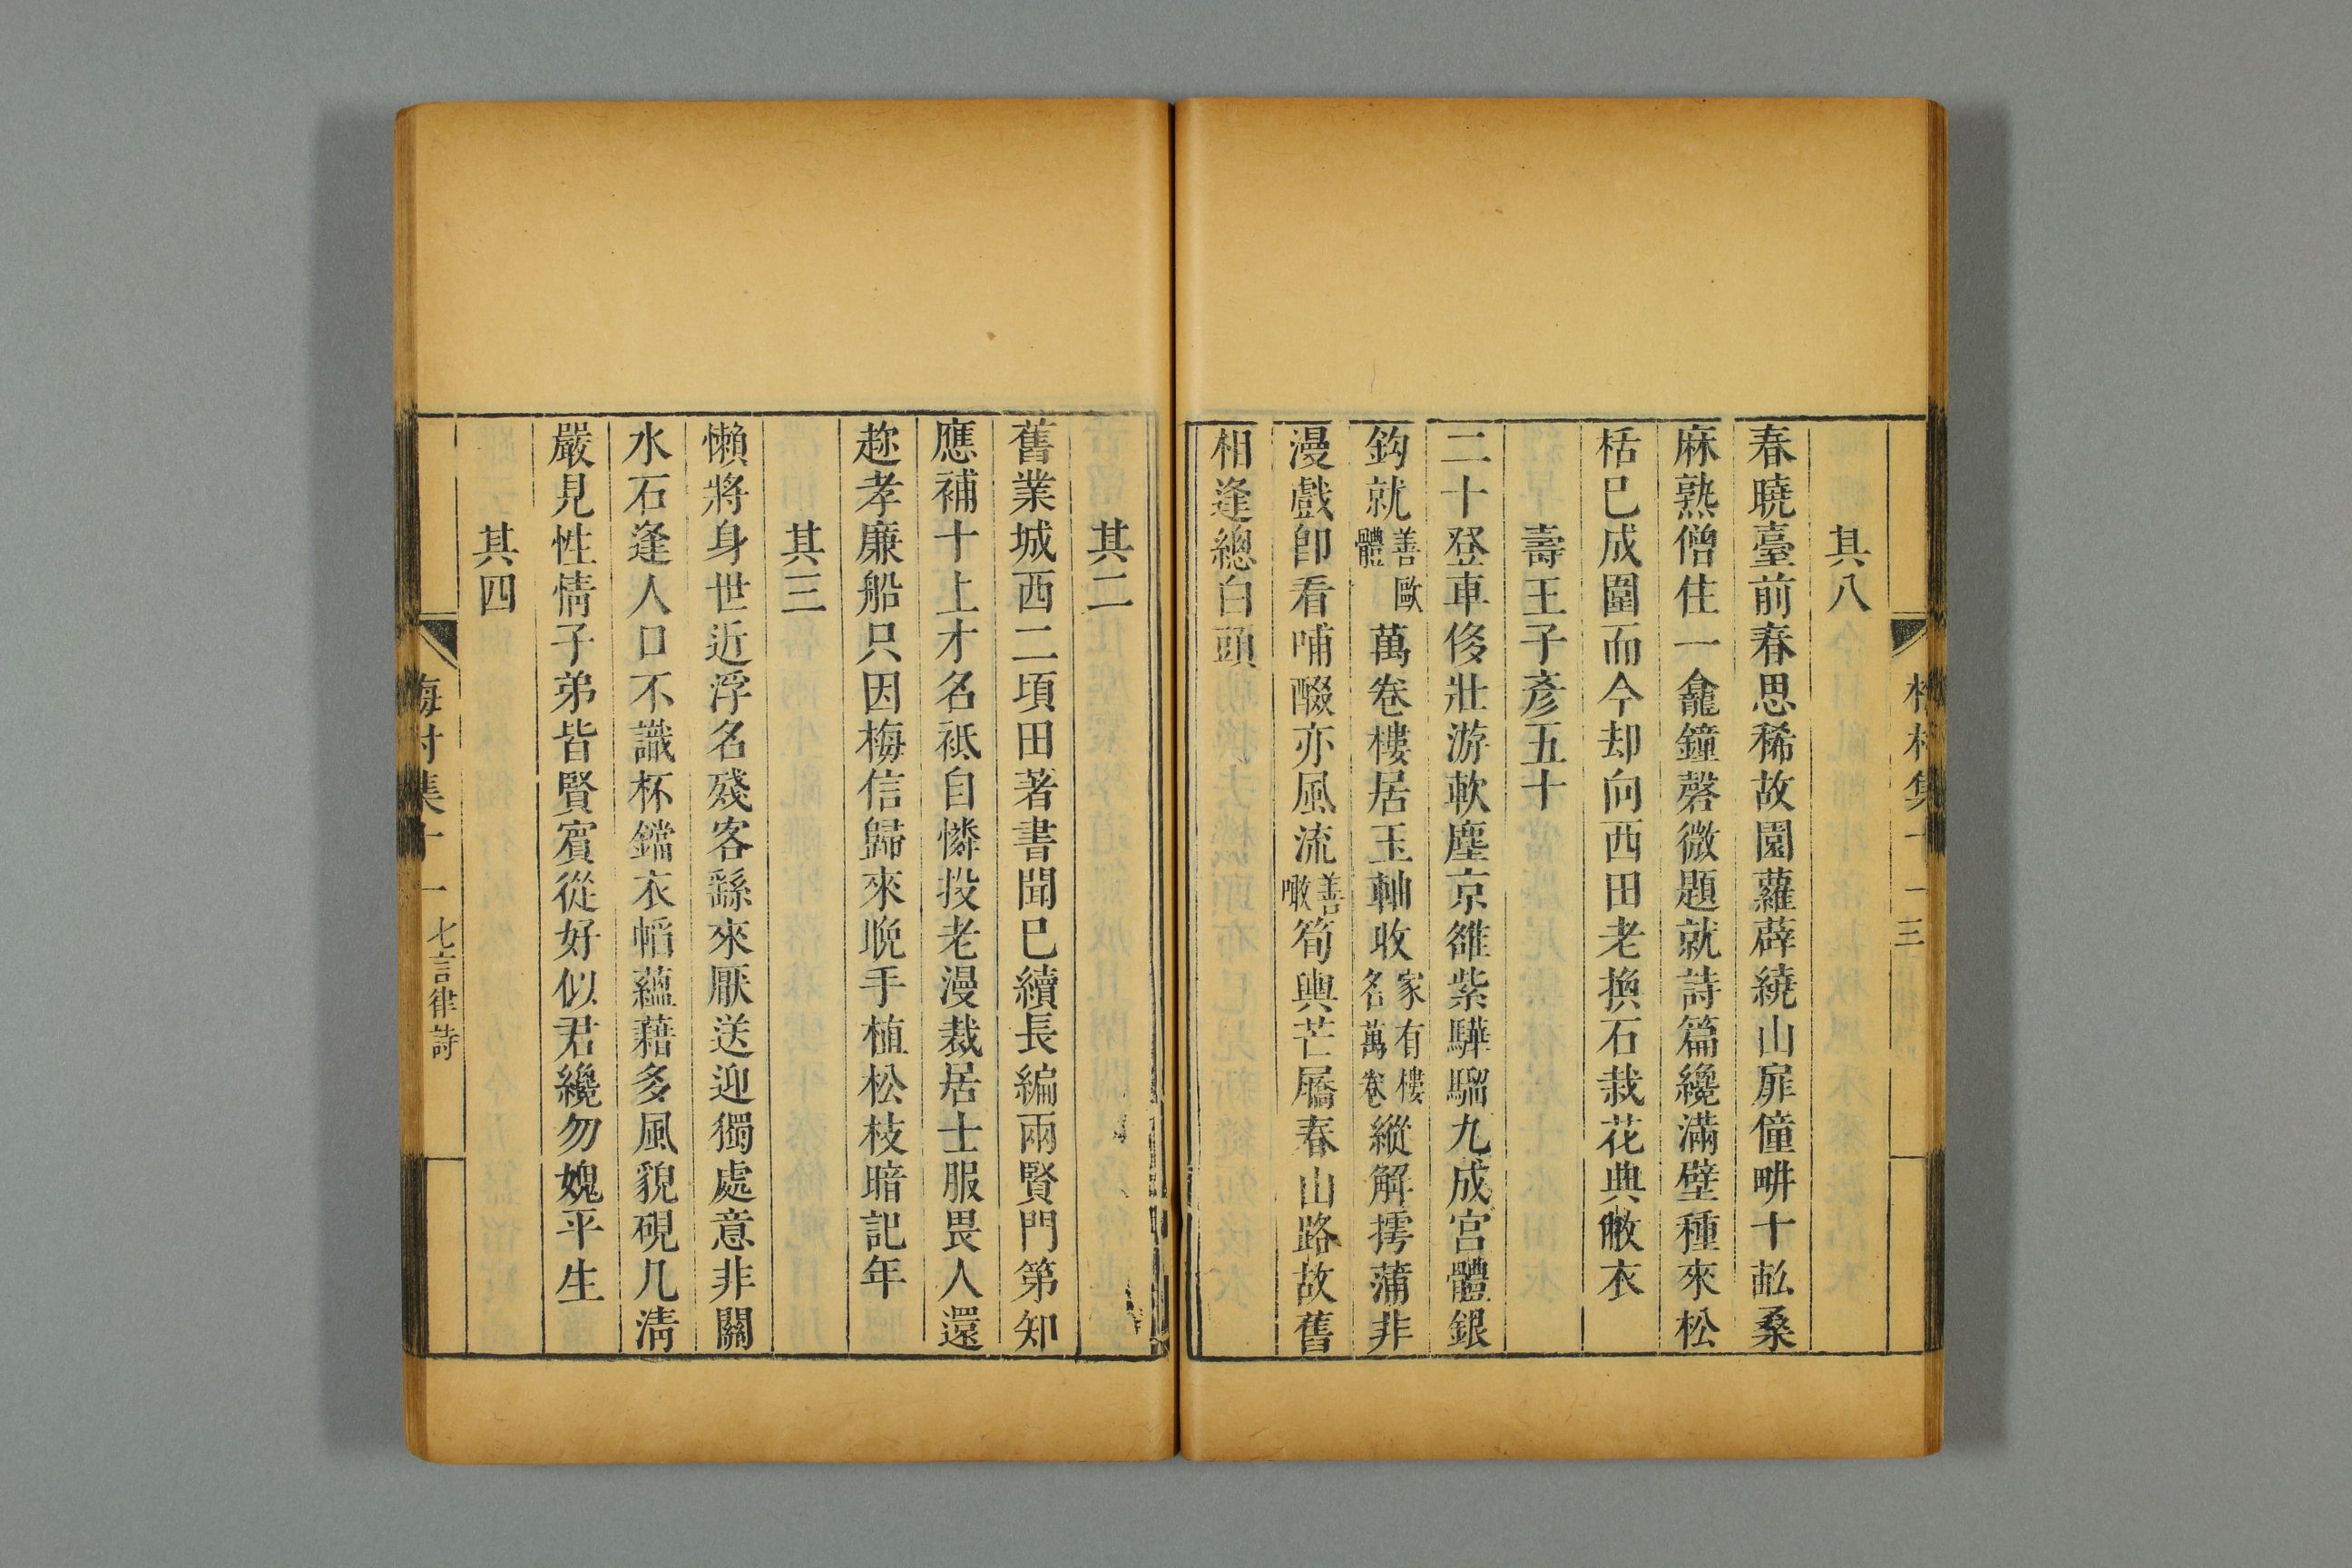 其八
春曉臺前春思稀故園蘿薜繞山扉僮畊十畝桑
麻熟僧住一龕鐘磬微題就詩篇纔滿壁種來松
栝已成圍而今却向西田老換石栽花典敝衣
壽王子彥五十
二十登車侈壯游軟塵京雒紫驊騮九成宮體銀
鈎就善歐體萬卷樓居玉軸收家有樓名萬卷縱解摴蒲非
漫戲卽看哺醊亦風流善噉筍輿芒屩春山路故舊
相逢總白頭
其二
舊業城西二頃田著書聞已續長編兩賢門第知
應補十上才名祇自憐投老漫裁居士服畏人還
趂孝廉船只因梅信歸來晚手植松枝暗記年
其三
懶將身世近浮名殘客繇來厭送迎獨處意非關
水石逢人口不識杯鐺衣幍蘊藉多風貌硯几清
嚴見性情子弟皆賢賓從好似君纔勿媿平生
其四
梅村集十
一
七言律詩